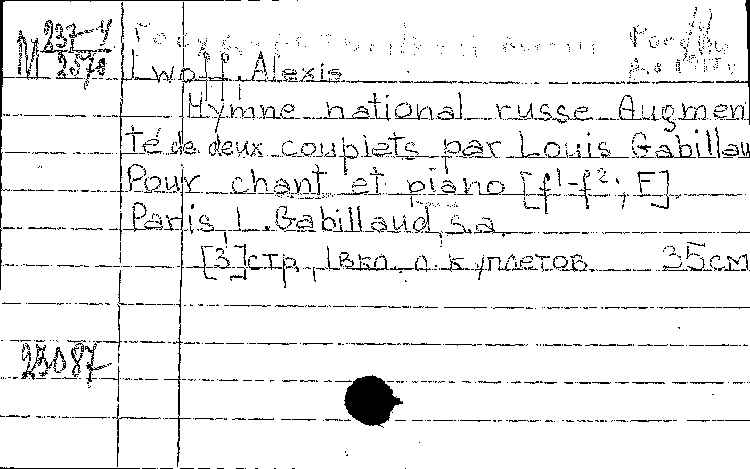 М 237-4
2570
Lwoff, Alexis
Hymne national russe Augmen
té de deux couplets par Louis Gabillau
Pour chant et piano [f¹-f²; F]
Paris, L. Gabillaud, s.a.
[3] стр., 1 вкл. л. куплетов 35 см
25087